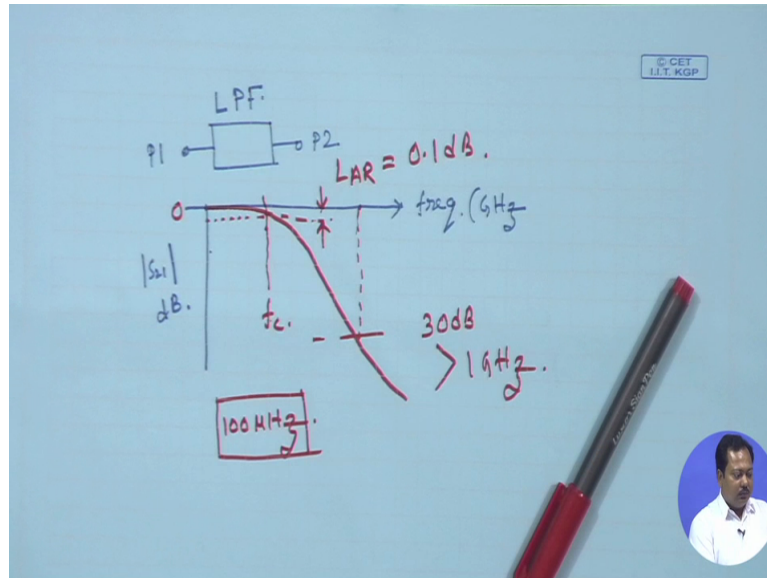 © CET
I.I.T. KGP
LPF.
P1
P2
LAR = 0.1dB.
0
freq. (GHz
|S21|
dB.
fc.
- 30dB
> 1GHz.
100MHz.